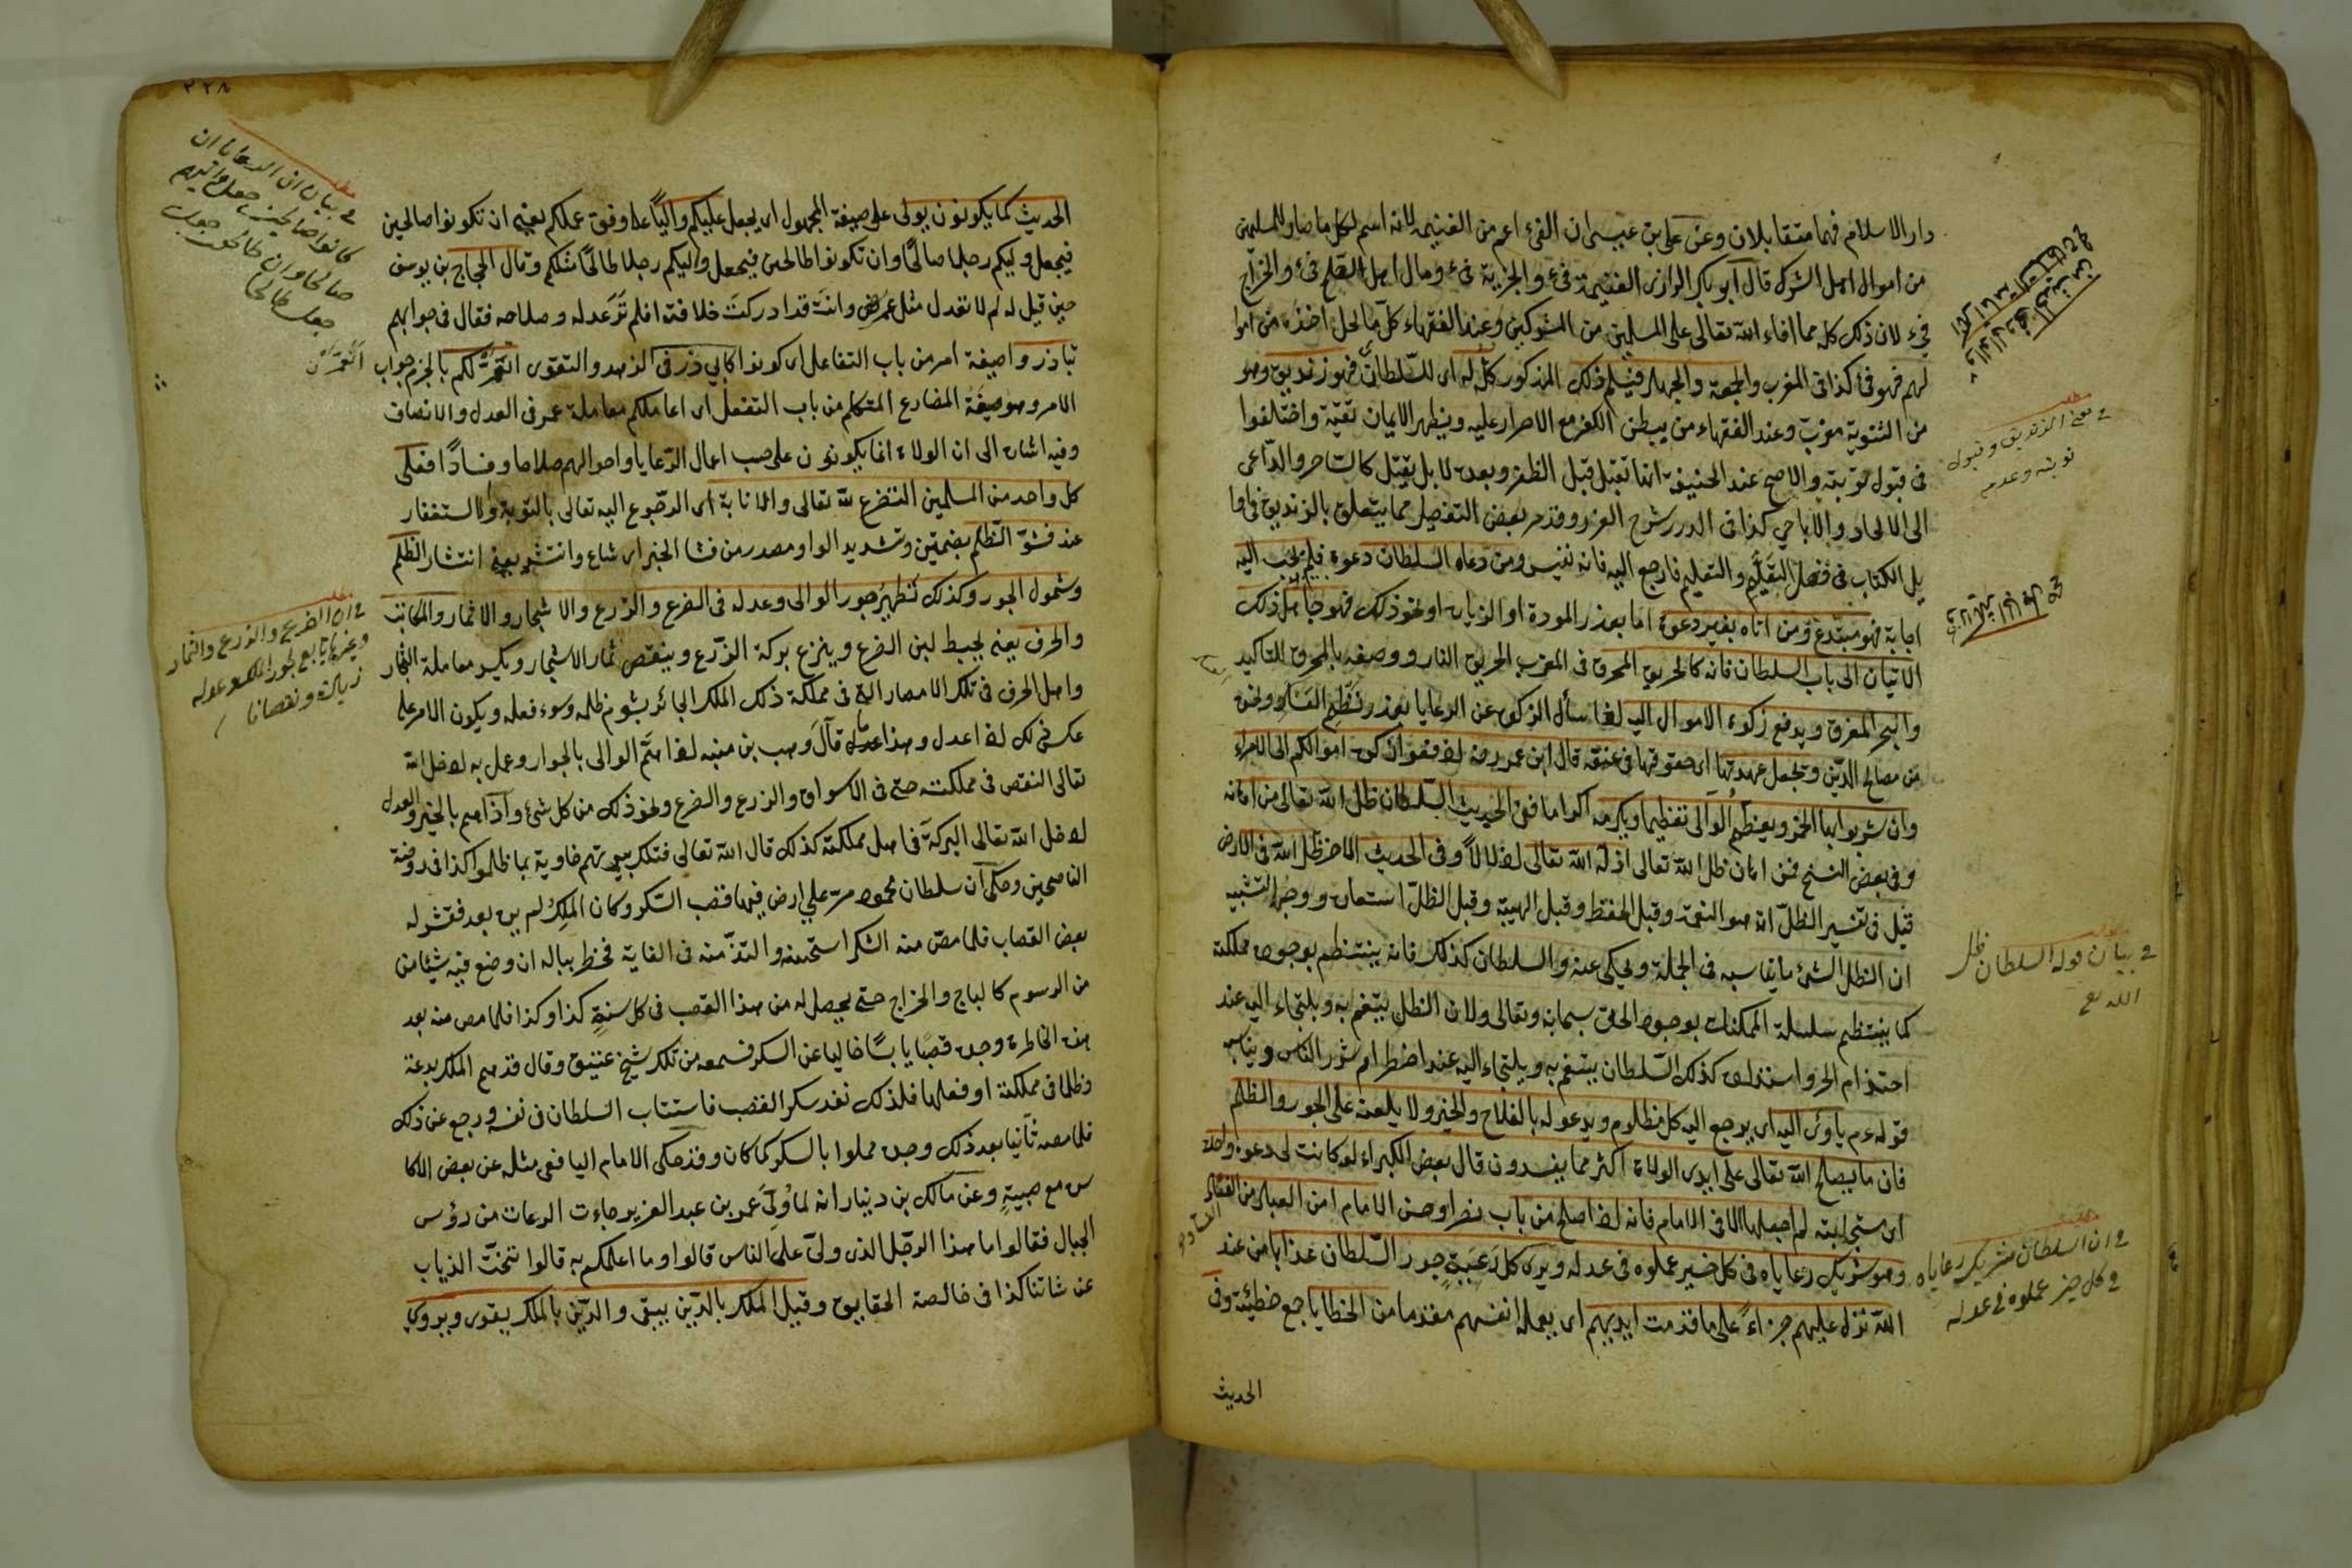 دار الاسلام فهما متقابلان وعن على بن عيسى ان الفىء اعم من الغنيمة لانه اسم لكل ما صار للمسلمين
من اموال اهل الشرك قال ابو بكر الرازى الغنيمة فىء والجزية فىء ومال اهل الصلح فىء والخراج
فىء لان ذلك كله مما افاء الله تعالى على المسلمين من المشركين وعند الفقهاء كل ما لحل اخذه من اموا
لهم فهو فىء كذا فى المغرب والجمعة والجهاد فيسلم ذلك المذكور كله له اى للسلطان فهو زنديق وهو
من الثنوية معرب وعند الفقهاء من يبطن الكفر مع الاصرار عليه ويظهر الايمان تقية واختلفوا
فى قبول توبته والاصح عند الحنيفة انها تقبل قبل الظفر وبعده لا بل يقتل كالساحر والداعى
الى الالحاد والاباحى كذا فى الدرر شرح الغرر وقد مر بعض التفصيل مما يتعلق بالزنديق فى اوا
يل الكتاب فى فصل التعلم والتعليم فارجع اليه فانه نفيس ومن دعاه السلطان دعوة فلم يجب اليه
اجابة فهو مبتدع ومن اتاه بغير دعوة اما بعذر المودة او الزيارة او نحو ذلك فهو جاهل ذلك
الاتيان الى باب السلطان فانه كالحريق المحرق فى المغرب الحريق النار ووصفه بالمحرق للتاكيد
والبحر المغرق ويدفع زكوة الاموال اليه اذا سأل الزكوة عن الرعايا بعذر
من مصالح الدين ويجعل عهدتها اى حقوقها فى عنقه قال ابن عمر رضه ادفعوا زكوة اموالكم الى الامراء
وان شربوا بها الخمر ويعظم الوالى تعظيما ويكرمه اكراما ففى الحديث السلطان ظل الله تعالى من اهانه
وفى بعض النسخ فمن اهان ظل الله تعالى اذله الله تعالى اذلالا وفى الحديث الاخر ظل الله فى الارض
قيل فى تفسير الظل انه هو النعمة وقيل الحفظ وقيل الهيبة وقيل الظل استعارة ووجه التشبيه
ان الظل الشىء ما يناسبه فى الجملة ويحكى عنه والسلطان كذلك فانه ينتظم بوجوده مملكته
كما ينتظم سلسلة الممكنات بوجود الحق سبحانه وتعالى ولان الظل ينتفع به ويلتجاء اليه عند
احتدام الحر واستذلاله كذلك السلطان ينتفع به ويلتجاء اليه عند اضطرام شرر الناس ويناسب
قوله عم ياوى اليه اى يرجع اليه كل مظلوم ويدعو له بالفلاح والخير ولا يلعنه على الجور والظلم
فان ما يصلح الله تعالى على ايدى الولاة اكثر مما يفسدون قال بعض الكبراء لو كانت لى دعوة واحدة
اى مستجابة لم اجعلها الا فى الامام فانه اذا اصلح من باب نصر او حسن الامام امن العباد من الفساد
وهو شريك رعاياه فى كل خير عملوه فى عدله ويرى كل رعية جور السلطان عذابا من عند
الله نزل عليهم جزاء على ما قدمت ايديهم اى بعمل انفسهم مقدما من الخطايا جمع خطيئة وفى
الحديث
مطلب
فى معنى الزنديق وقبول
توبته وعدمه
فى بيان قوله السلطان ظل
الله تع
مطلب
فى ان السلطان شريك رعاياه
فى كل خير عملوه فى عدله
٢٢٨
الحديث كما يكونون يولى على صيغة المجهول اى يجعل عليكم واليا على وفق عملكم يعنى ان تكونوا صالحين
فيجعل وليكم رجلا صالحا وان تكونوا طالحين فيجعل واليكم رجلا طالحا مثلكم وقال الحجاج بن يوسف
حين قيل له لم لا تعدل مثل عمر رض وانت قد ادركت خلافته افلم تر عدله وصلاحه فقال فى جوابهم
تباذروا صيغة امر من باب التفاعل اى كونوا كابى ذر فى الزهد والتقوى اتعمر لكم بالجزم جواب
الامر وهو صيغة المضارع المتكلم من باب التفعل اى اعاملكم معاملة عمر فى العدل والانصاف
وفيه اشارة الى ان الولاة انما يكونون على حسب اعمال الرعايا واحوالهم صلاحا وفسادا فعلى
كل واحد من المسلمين التضرع لله تعالى والانابة اى الرجوع اليه تعالى بالتوبة والاستغفار
عند فشو الظلم بضمتين وتشديد الواو مصدر من فشا الخبر اى شاع وانتشر يعنى انتشار الظلم
وشمول الجور وكذلك تظهر جور الوالى وعدله فى الضرع والزرع والاشجار والاثمار والمكاسب
والحرف يعنى يحبط لبن الضرع وينزع بركة الزرع وينقص ثمار الاشجار ويكسد معاملة التجار
واهل الحرف فى تلك الامصار التى فى مملكة ذلك الملك الجائر بشوم ظلمه وسوء فعله ويكون الامر على
عكس ذلك اذا عدل وهذا قال وهب بن منبه اذا هم الوالى بالجوار وعمل به ادخل الله
تعالى النقص فى مملكته حتى فى الاسواق والزرع والضرع ونحو ذلك من كل شىء واذا هم بالخير والعدل
ادخل الله تعالى البركة فى اهل مملكته كذلك قال الله تعالى فتلك بيوتهم خاوية بما ظلموا كذا فى روضة
الناصحين وحكى ان سلطان محمود مر على ارض فيها قصب السكر وكان الملك لم يره بعد فقشر له
بعض القصاب فلما مص منه السكر استحسنه والتذ منه فى الغاية فخطر بباله ان وضع فيه شيئا من
من الرسوم كالباج والخراج حتى يحصل له من هذا القصب فى كل سنة كذا وكذا فلما مص منه بعد
هذه الخاطرة وجده قصبا يابسا خاليا عن السكر فسمعه من تلك شيخ عتيق وقال قد هم الملك بدعة
وظلما فى مملكته او فعلها فلذلك نفد سكر القصب فاستتاب السلطان فى نفسه ورجع عن ذلك
فلما مصه ثانيا بعد ذلك وجده مملوا بالسكر كما كان وقد حكى الامام اليافعى مثله عن بعض الاكا
سره مع صبية وعن مالك بن دينار انه لما ولى عمر بن عبد العزيز جاءت الرعاة من رؤس
الجبال فقالوا ما هذا الرجل الذى ولى على الناس قالوا وما اعلمكم به قالوا تنحت الذياب
عن شاتنا كذا فى خالصة الحقايق وقيل الملك بالدين يبقى والدين بالملك يقوى ويروى
مطلب
فى بيان ان الرعايا ان
كانوا صالحين جعل واليهم
صالحا وان طالحين جعل
طالحا
مطلب
فى ان الضرع والزرع والثمار
وغيرها تابع لجور الملك وعدله
زيادة ونقصانا